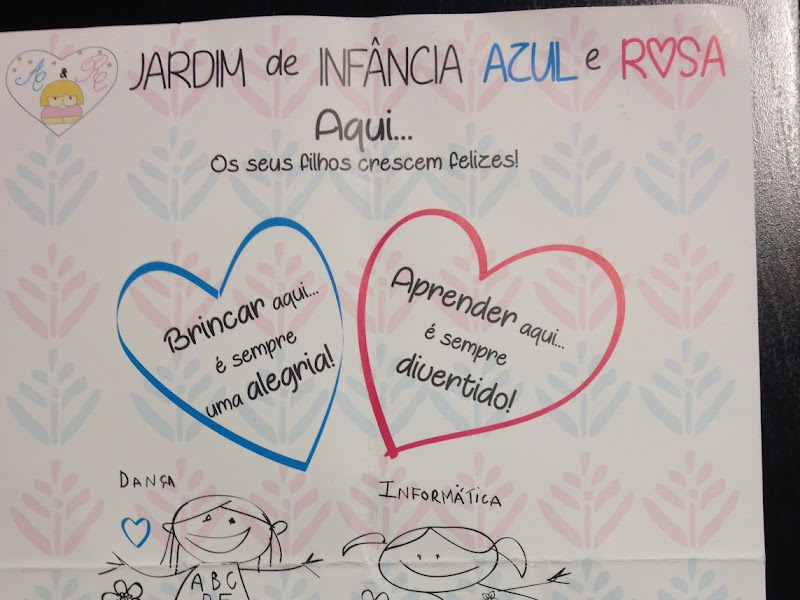 A & R
JARDIM de INFÂNCIA AZUL e ROSA
Aqui...
Os seus filhos crescem felizes!
Brincar aqui...
é sempre
uma alegria!
Aprender aqui...
é sempre
divertido!
DANÇA
INFORMÁTICA
ABC
DE